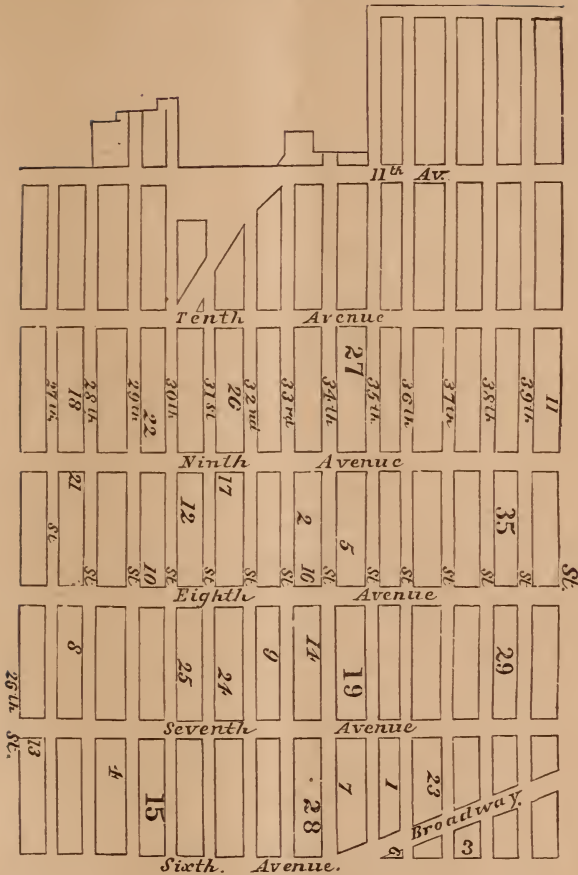 11th Av.
Tenth Avenue
27th
18
28th
29th
22
30th
31st
26
32nd
33rd
34th
27
35th
36th
37th
38th
39th
11
Ninth Avenue
St
21
St.
St.
10
St.
12
St.
17
St.
St.
2
16
St.
5
St.
St.
St.
St.
35
St.
St.
Eighth Avenue
8
25
24
9
14
19
29
Seventh Avenue
26th St.
13
4
15
28
7
1
23
Broadway.
6
3
Sixth. Avenue.